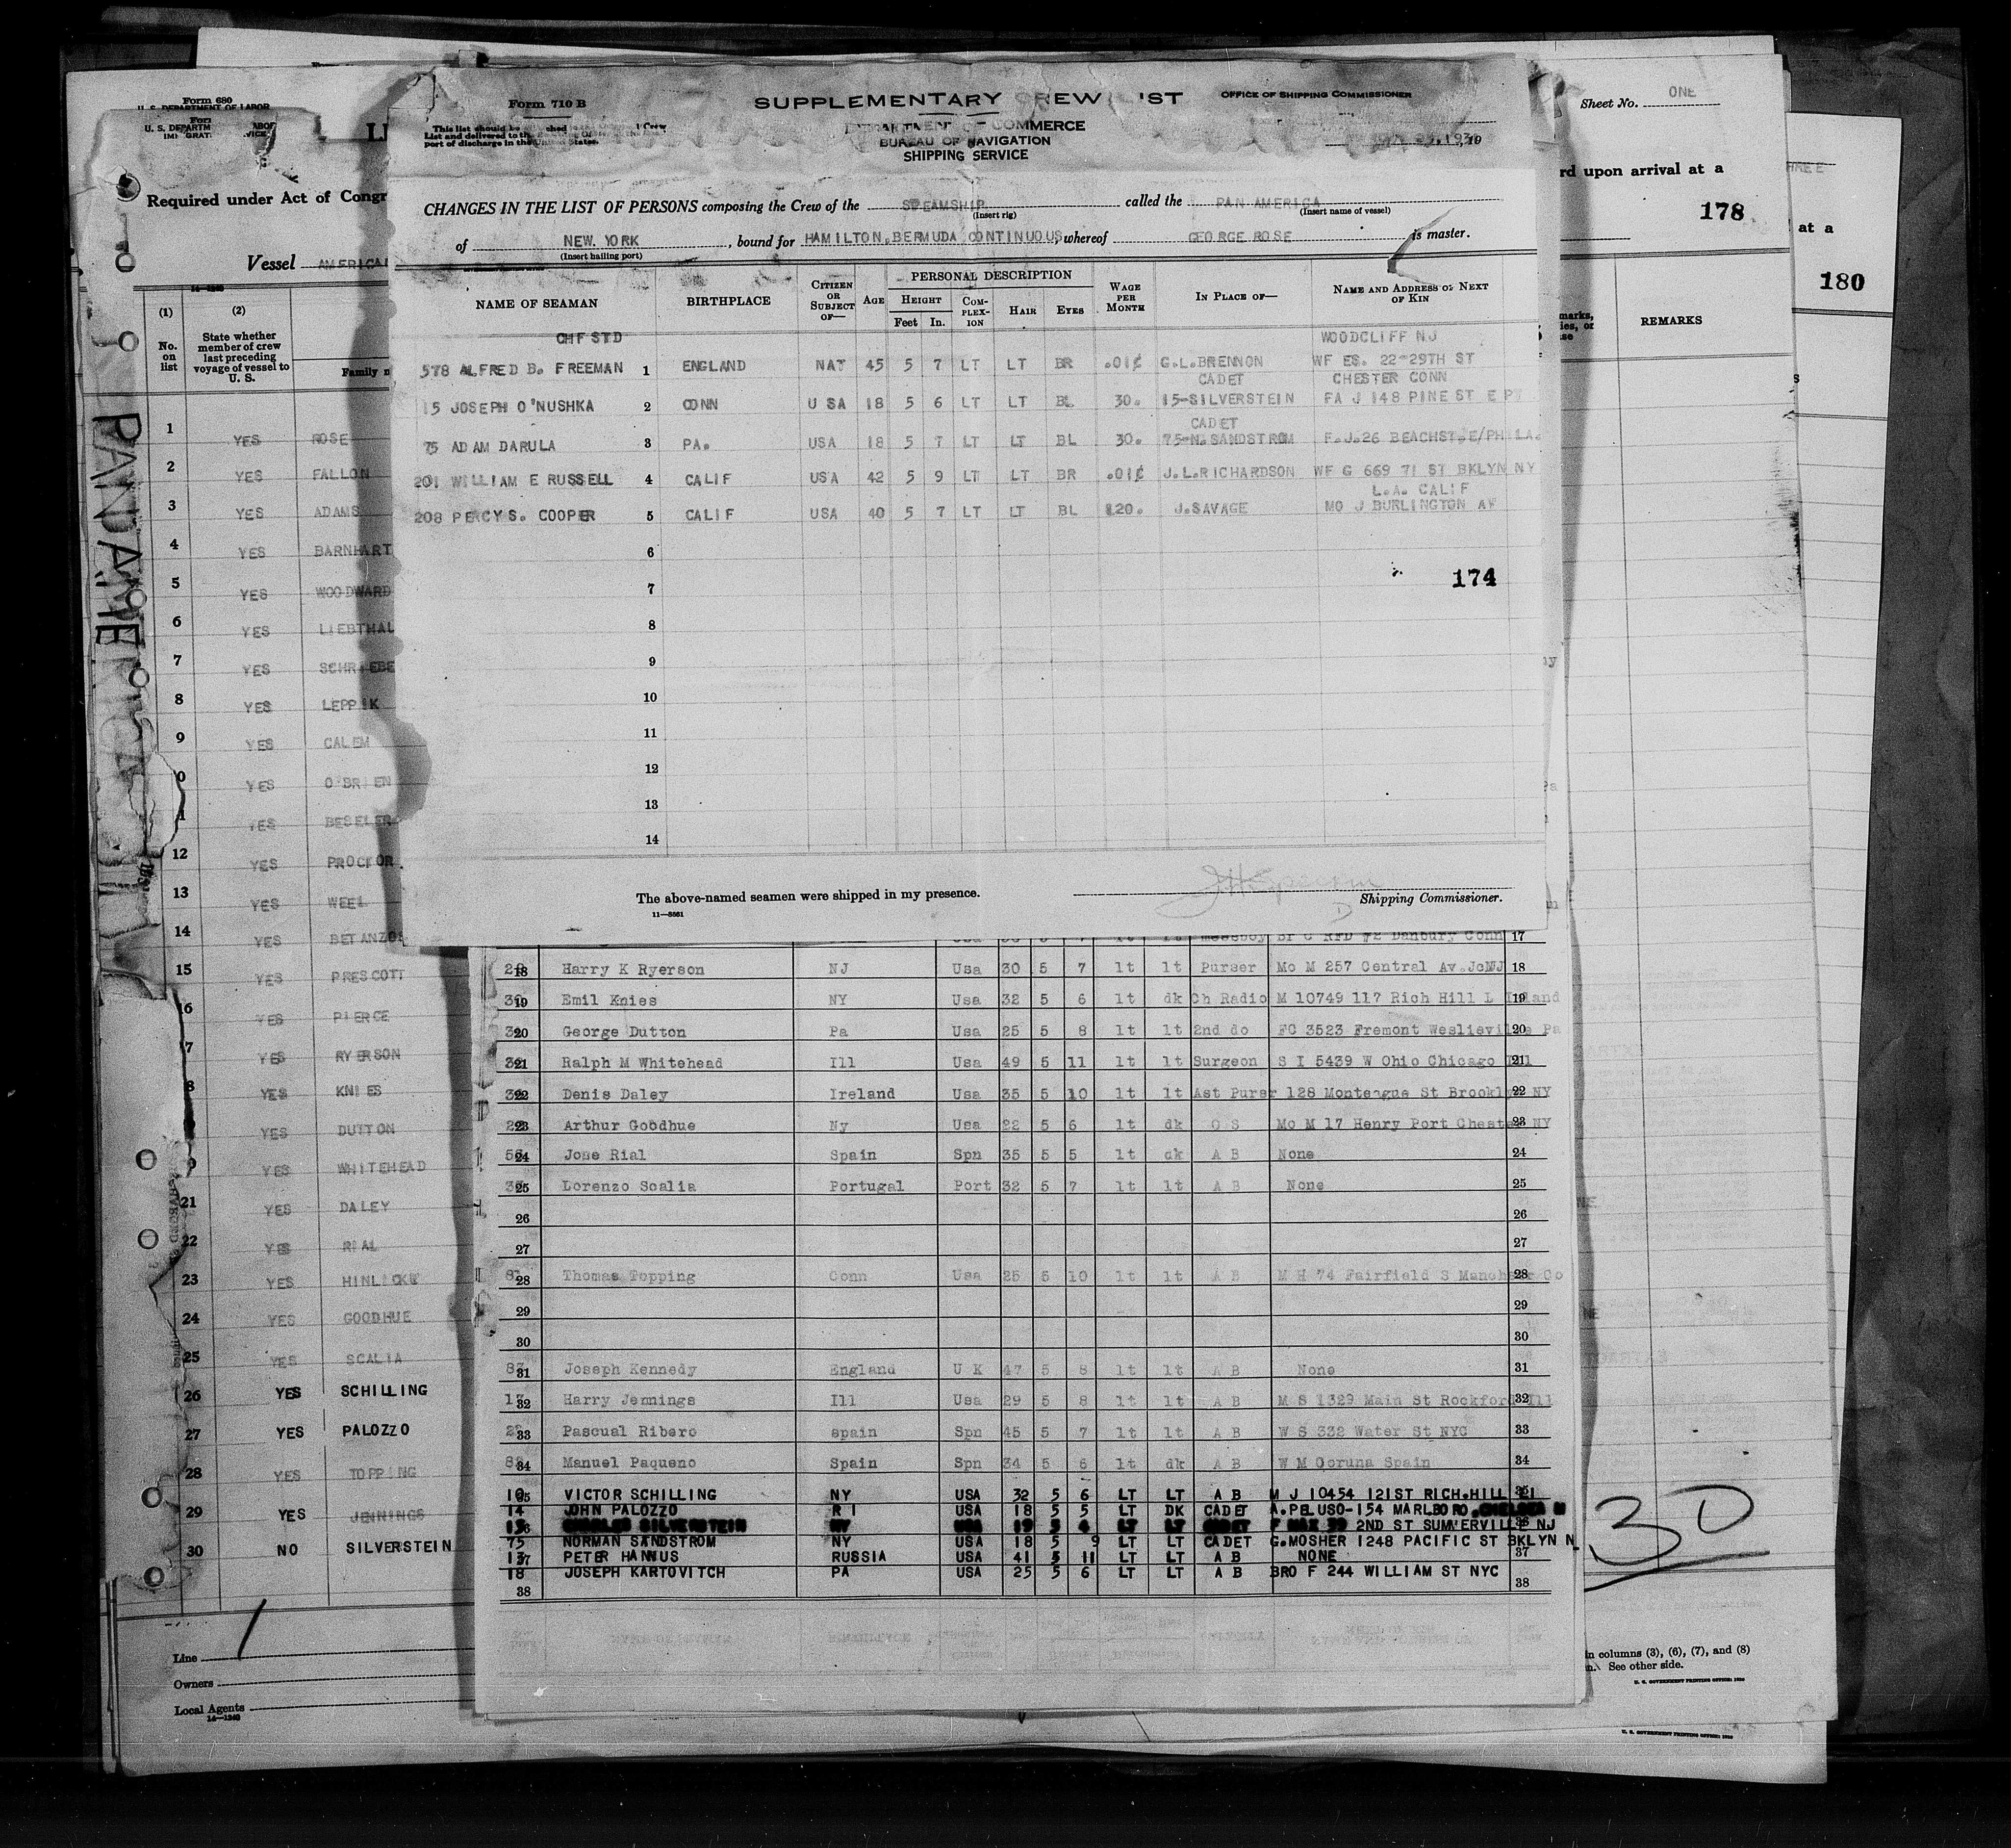 Form 680
U. S. DEPARTMENT OF LABOR
Sheet No. ONE
Required under Act of Congr
rd upon arrival at a
178
at a
180
Vessel AMERICAN
Form 710 B
SUPPLEMENTARY CREW LIST
OFFICE OF SHIPPING COMMISSIONER
This list should be
List and delivered to the
port of discharge in the United States.
DEPARTMENT OF COMMERCE
BUREAU OF NAVIGATION
SHIPPING SERVICE
CHANGES IN THE LIST OF PERSONS composing the Crew of the STEAMSHIP called the PAN AMERICA
(Insert rig) (Insert name of vessel)
of NEW YORK, bound for HAMILTON, BERMUDA CONTINUOUS, whereof GEORGE ROSE is master.
(Insert hailing port)
NAME OF SEAMAN BIRTHPLACE CITIZEN OR SUBJECT OF— AGE PERSONAL DESCRIPTION HEIGHT Feet In. COMPLEXION HAIR EYES WAGE PER MONTH IN PLACE OF— NAME AND ADDRESS OF NEXT OF KIN
CHF STD WOODCLIFF NJ
578 ALFRED B. FREEMAN 1 ENGLAND NAT 45 5 7 LT LT BR .01¢ G.L.BRENNON WF ES. 22-29TH ST
CADET CHESTER CONN
15 JOSEPH O'NUSHKA 2 CONN U SA 18 5 6 LT LT BL 30. 15-SILVERSTEIN FA J 148 PINE ST E PT
CADET
75 ADAM DARULA 3 PA. USA 18 5 7 LT LT BL 30. 75-N.SANDSTROM F.J.26 BEACHST.E/PHILA.
201 WILLIAM E RUSSELL 4 CALIF USA 42 5 9 LT LT BR .01¢ J.L.RICHARDSON WF G 669 71 ST BKLYN NY
L.A. CALIF
208 PERCY S. COOPER 5 CALIF USA 40 5 7 LT LT BL 120. J.SAVAGE MO J BURLINGTON AV
6
7
174
8
9
10
11
12
13
14
The above-named seamen were shipped in my presence.
Shipping Commissioner.
11—8861
(1) (2)
No. on list
State whether member of crew last preceding voyage of vessel to U. S.
Family n
REMARKS
1 YES ROSE
2 YES FALLON
3 YES ADAMS
4 YES BARNHART
5 YES WOODWARD
6 YES LIEBTHAL
7 YES SCHRIEBE
8 YES LEPPIK
9 YES CALEM
0 YES O'BRIEN
1 YES BESELER
12 YES PROCTOR
13 YES WEEL
14 YES BETANZOS
15 YES PRESCOTT
6 YES PIERCE
7 YES RYERSON
8 YES KNIES
YES DUTTON
YES WHITEHEAD
21 YES DALEY
22 YES RIAL
23 YES HINLICKY
24 YES GOODHUE
25 YES SCALIA
26 YES SCHILLING
27 YES PALOZZO
28 YES TOPPING
29 YES JENNINGS
30 NO SILVERSTEIN
Messboy Br C RFD #2 Danbury Conn 17
18 Harry K Ryerson NJ Usa 30 5 7 lt lt Purser Mo M 257 Central Av.JcNJ 18
19 Emil Knies NY Usa 32 5 6 lt dk Ch Radio M 10749 117 Rich Hill L Island 19
20 George Dutton Pa Usa 25 5 8 lt lt 2nd do FC 3523 Fremont Weslieville Pa 20
21 Ralph M Whitehead Ill Usa 49 5 11 lt lt Surgeon S I 5439 W Ohio Chicago Ill 21
22 Denis Daley Ireland Usa 35 5 10 lt lt Ast Purser 128 Monteague St Brooklyn NY 22
23 Arthur Goodhue Ny Usa 22 5 6 lt dk O S Mo M 17 Henry Port Chester NY 23
24 Jose Rial Spain Spn 35 5 5 lt dk A B None 24
25 Lorenzo Scalia Portugal Port 32 5 7 lt lt A B None 25
26 26
27 27
28 Thomas Topping Conn Usa 25 5 10 lt lt A B M H 74 Fairfield S Manchester Co 28
29 29
30 30
31 Joseph Kennedy England U K 47 5 8 lt lt A B None 31
32 Harry Jennings Ill Usa 29 5 8 lt lt A B M S 1329 Main St Rockford Ill 32
33 Pascual Ribero spain Spn 45 5 7 lt lt A B W S 332 Water St NYC 33
34 Manuel Paqueno Spain Spn 34 5 6 lt dk A B W M Coruna Spain 34
35 VICTOR SCHILLING NY USA 32 5 6 LT LT A B M J 10454 121ST RICH.HILL LI 35
14 JOHN PALOZZO R I USA 18 5 5 LT DK CADET A.PELUSO-154 MARLBORO.
SILVERSTEIN 2ND ST SUMMERVILLE NJ 36
75 NORMAN SANDSTROM NY USA 18 5 9 LT LT CADET G.MOSHER 1248 PACIFIC ST BKLYN N
37 PETER HANNUS RUSSIA USA 41 5 11 LT LT A B NONE 37
18 JOSEPH KARTOVITCH PA USA 25 5 6 LT LT A B BRO F 244 WILLIAM ST NYC
38 38
30
Line
Owners
Local Agents
14—1240
in columns (3), (6), (7), and (8)
See other side.
U. S. GOVERNMENT PRINTING OFFICE
PAN AMERICA